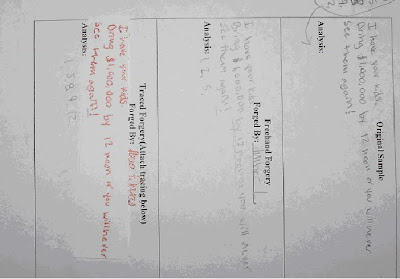 Original Sample
I have your kids.
Bring $1,000,000 by 12 noon or you will never
see them again!
Analysis:
Freehand Forgery
Forged By:
I have your kids.
Bring $1,000,000 by 12 noon or you will never
see them again!
Analysis:
1 2 5
Traced Forgery(Attach tracing below)
Forged By:
I have your kids.
Bring $1,000,000 by 12 noon or you will never
see them again!
Analysis:
1 5 8 9 12